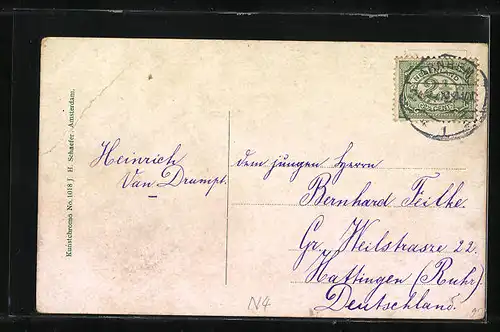 Kunstchromo No. 1018 J. H. Schaefer, Amsterdam.
Heinrich
Van Drumpt.
dem jungen Herrn
Bernhard Feilke.
Gr. Weilstrasze 22.
Hattingen (Ruhr)
Deutschland.
2½
1
N4